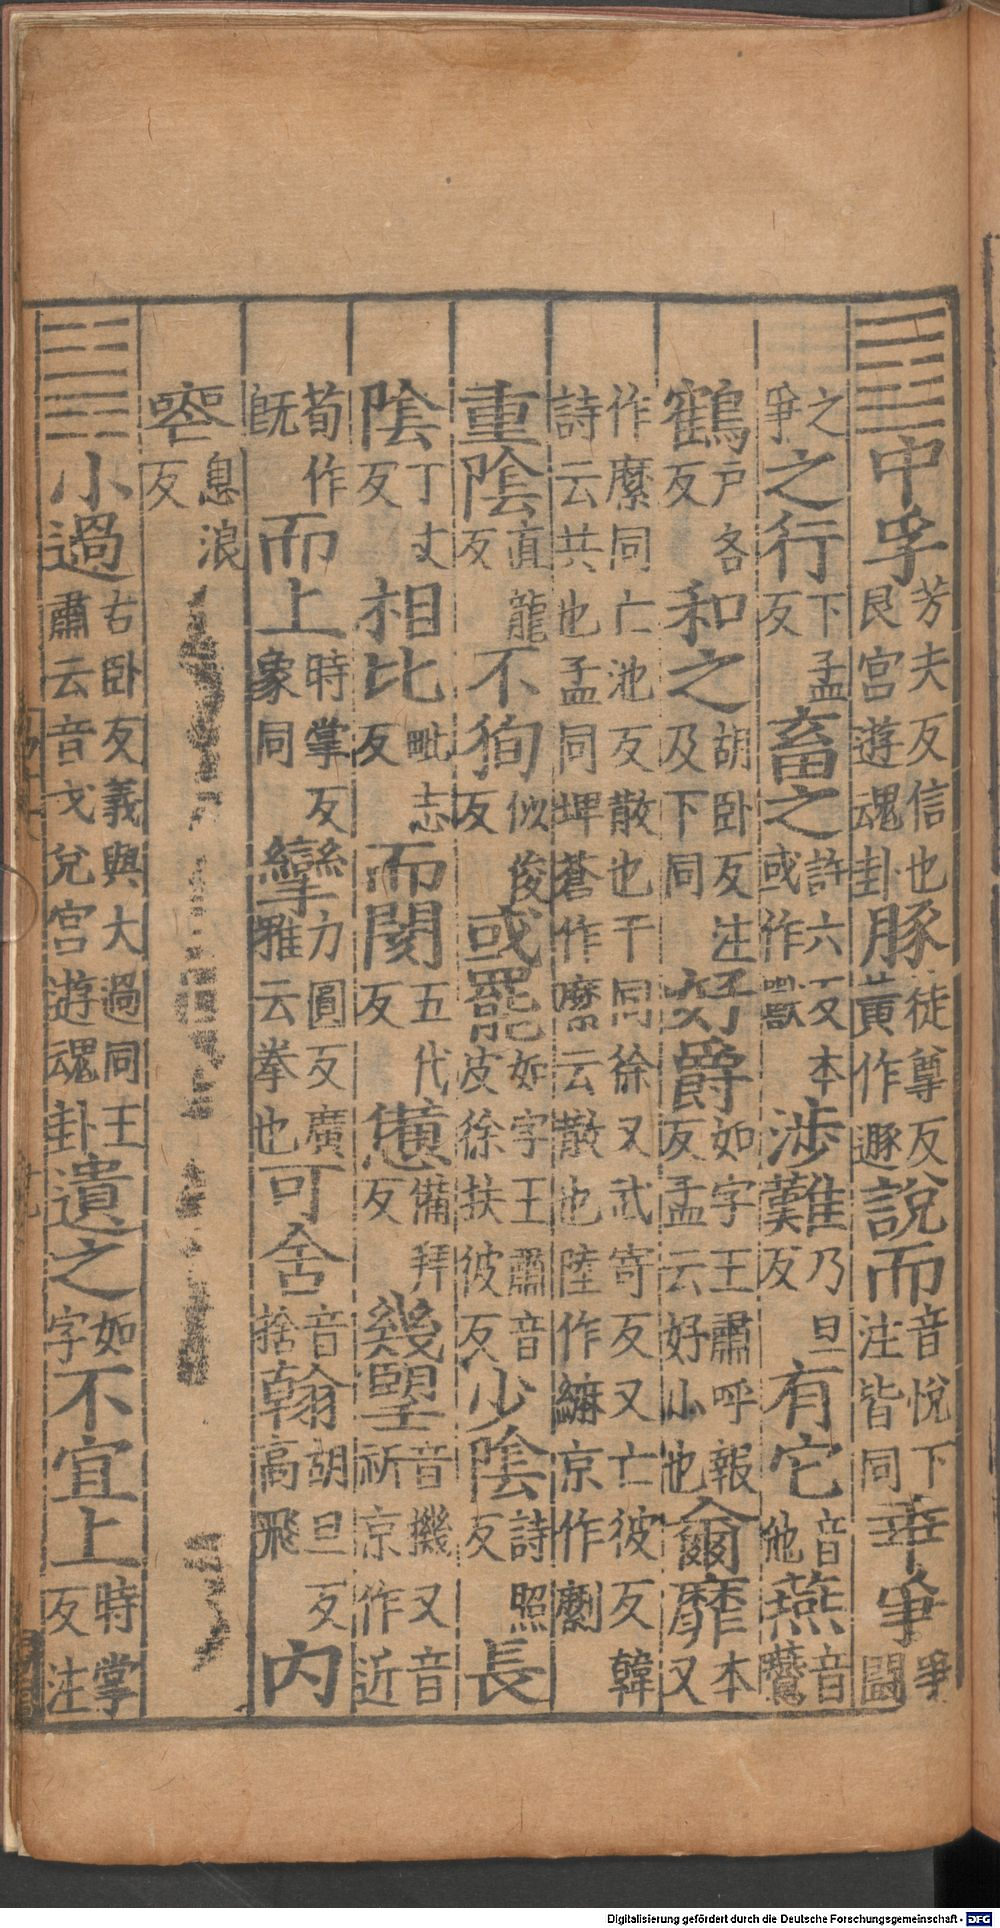 ䷼中孚芳夫反信也艮宮遊魂卦豚徒尊反黃作遯說而音悅下注皆同乖爭爭鬪
之爭之行下孟反畜之許六反本或作獸涉難乃旦反有它音他燕音鷰
鶴戶各反和之胡卧反注及下同好爵如字王肅呼報反孟云好小也爾靡本又
作縻同亡池反散也干同徐又武寄反又亡彼反韓詩云共也孟同埤蒼作縻云散也陸作䌕京作劘
重陰直龍反不徇似俊反或罷如字王肅音皮徐扶彼反少陰詩照反長
陰丁丈反相比毗志反而閡五代反憊備拜反幾望音機又音祈京作近
荀作既而上時掌反象同攣力圓反廣雅云拳也可舍音捨翰胡旦反高飛內
喪息浪反
䷽小過古卧反義與大過同王肅云音戈兌宮遊魂卦遺之如字不宜上時掌反注
Digitalisierung gefördert durch die Deutsche Forschungsgemeinschaft - DFG